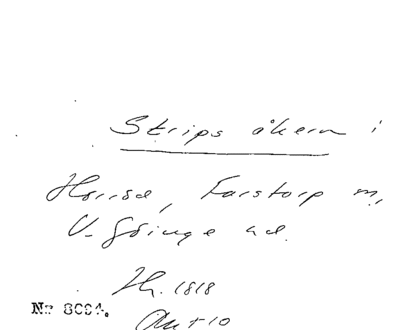 Strips åkern i
Horröd, Farstorp m,
V. Göinge hd.
Hg. 1818
Nr 8004.